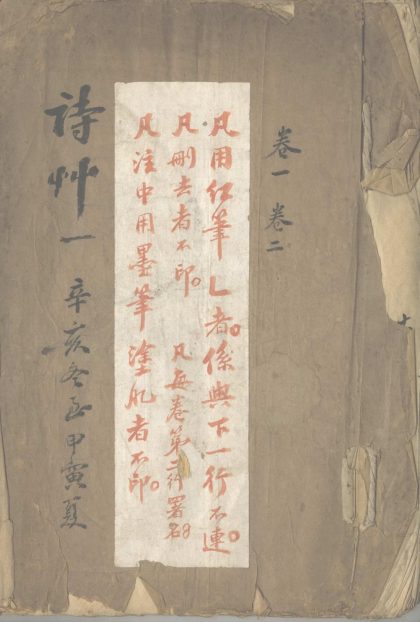 卷一 卷二
凡用红筆乚者。係與下一行不連。
凡刪去者不印。 凡每卷第二行署名
凡注中用墨筆塗者不印。
詩艸一 辛亥冬至甲寅夏